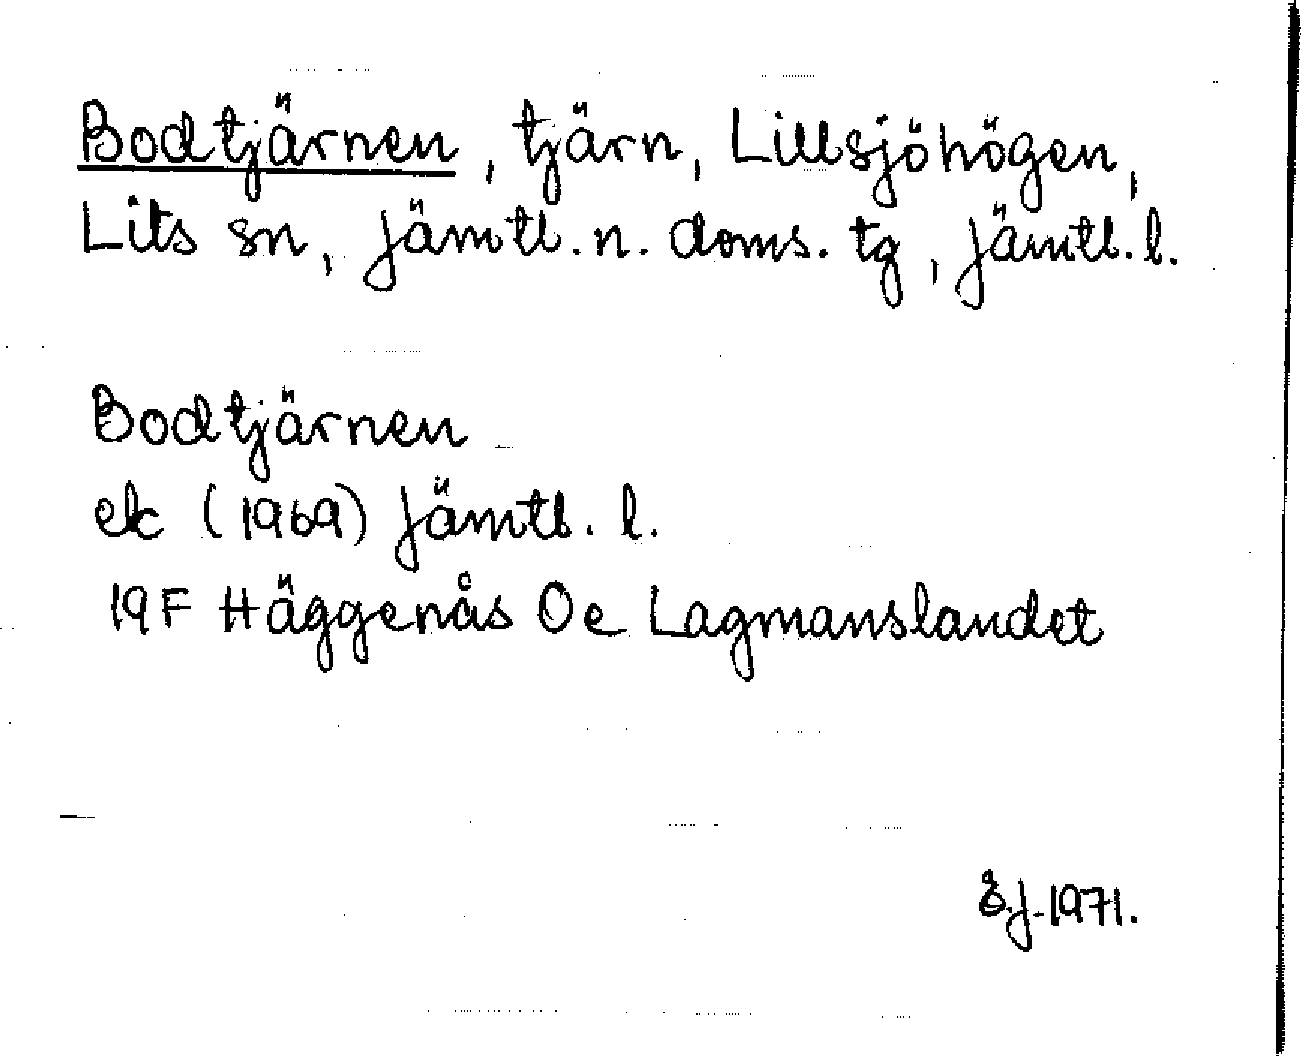 Bodtjärnen, tjärn, Lillsjöhögen,
Lits sn, Jämtl. n. doms. tg, Jämtl. l.
Bodtjärnen
ek (1969) Jämtl. l.
19F Häggenås Oe Lagmanslandet
1971.